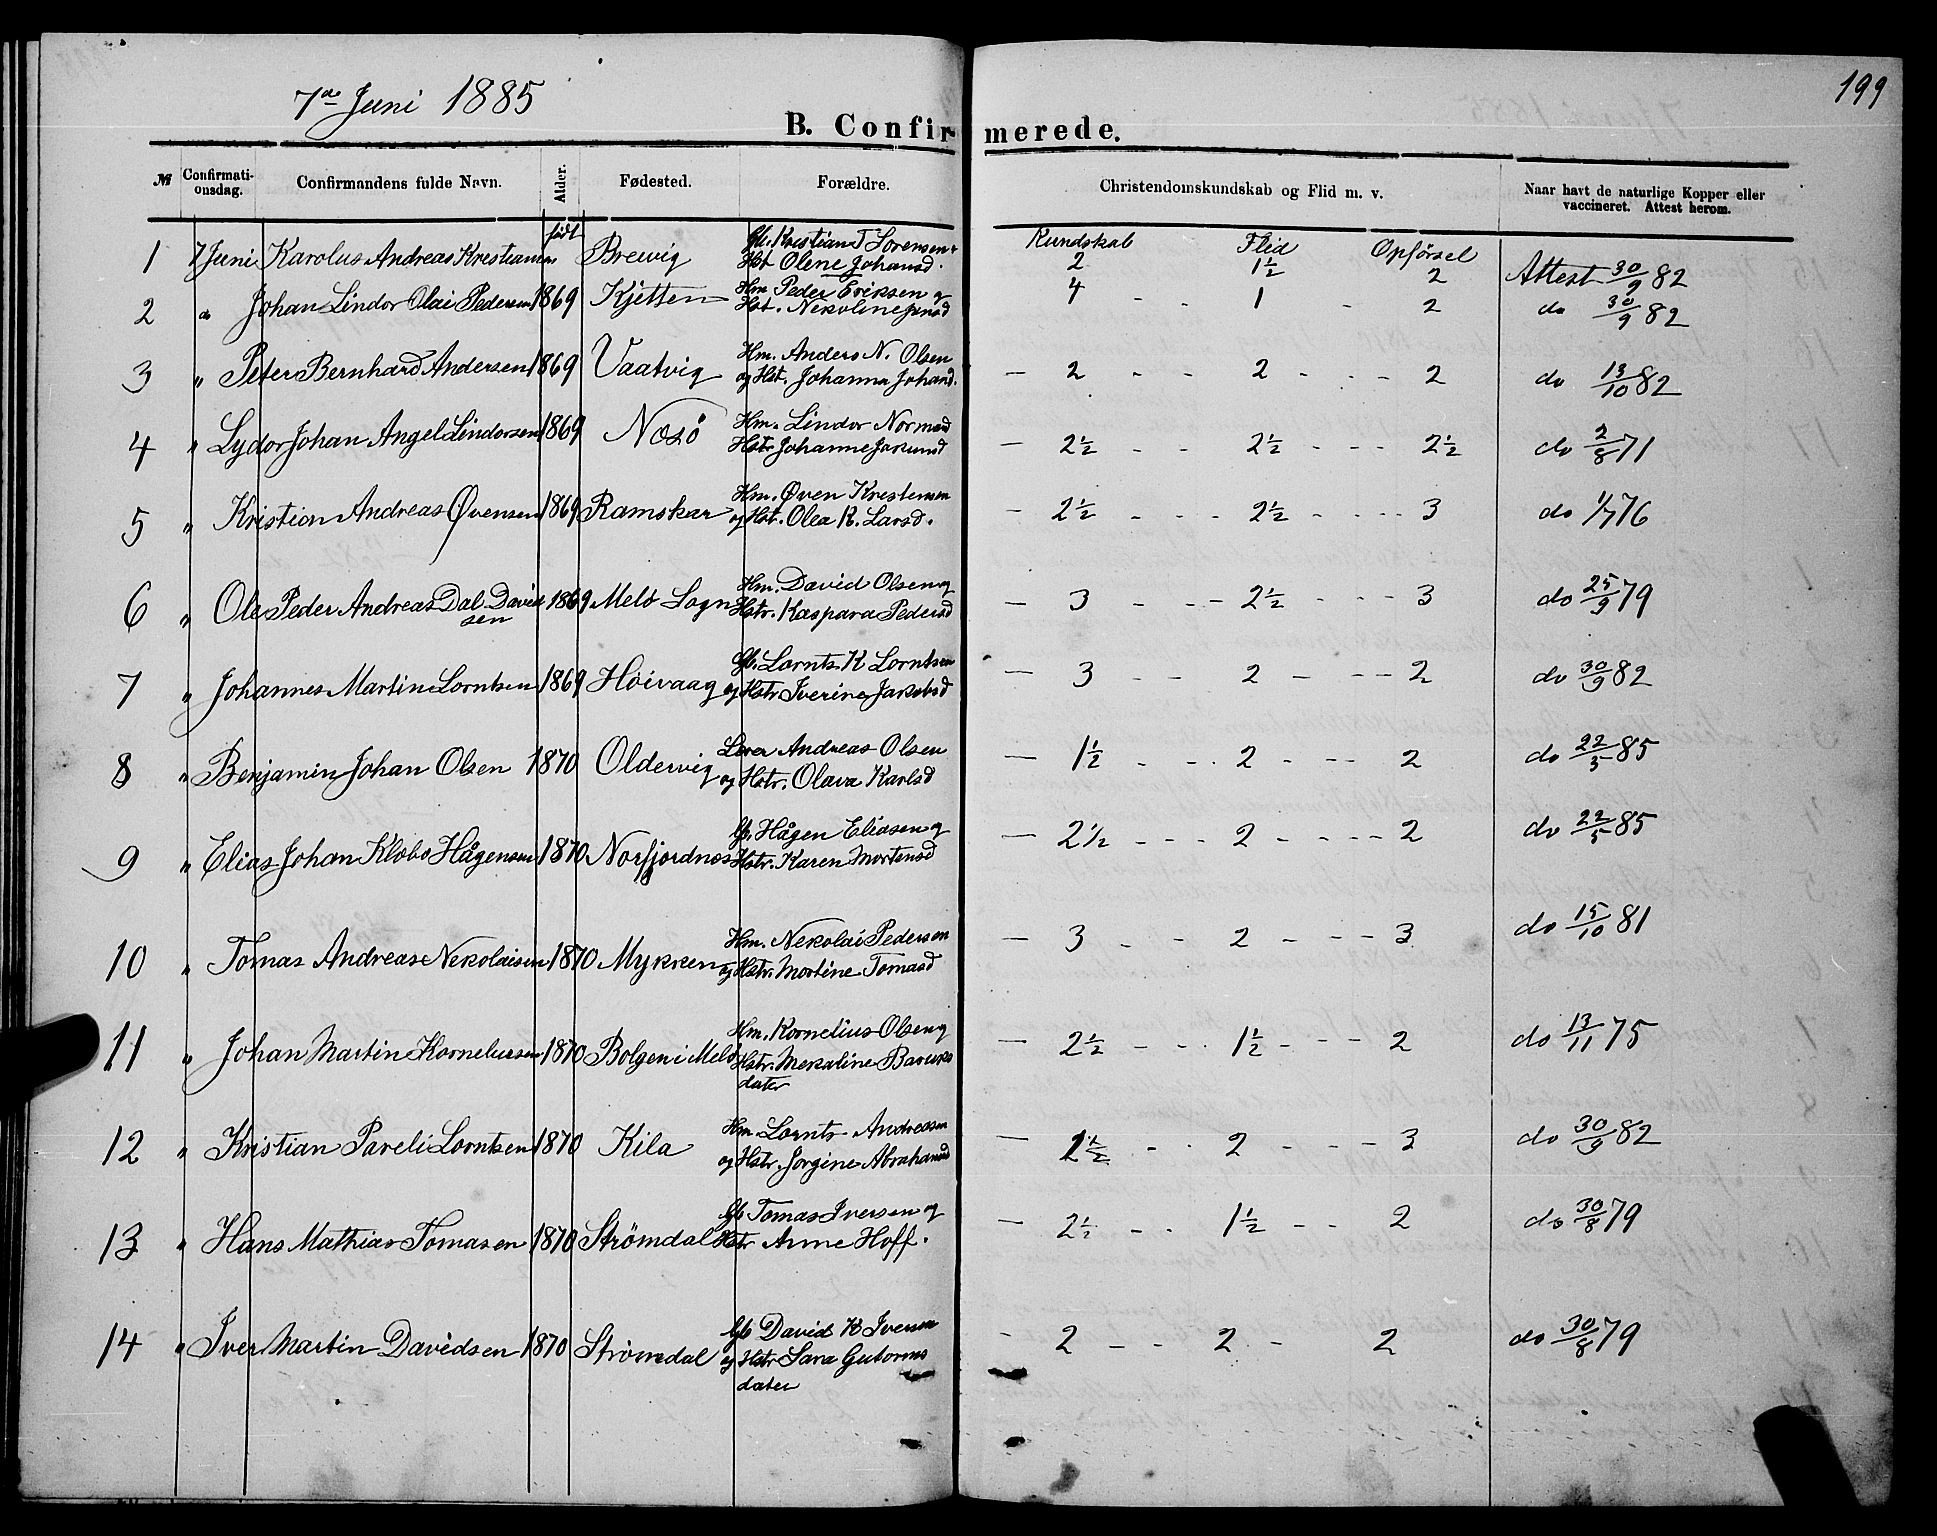 199
7de Juni 1885
B. Confirmerede.
№ Confirmationsdag. Confirmandens fulde Navn. Alder. Fødested. Forældre. Christendomskundskab og Flid m. v. Naar havt de naturlige Kopper eller vaccineret. Attest herom.
født Kundskab Flid Opførsel
1 7 Juni Karolus Andreas Kristiansen Brevig Gb. Kristian T Sorensen 2 1½ 2 Attest 30/9 82
Hst Olene Johansd.
2 do Johan Lindor Olai Pedersen 1869 Kjetten Hm Peder Eriksen og 4 - - 1 - 2 do 30/9 82
Hst. Nekoline Jensd
3 " Peter Bernhard Andersen 1869 Vaatvig Hm. Anders N. Olsen — 2 - - 2 - - - 2 do 13/10 82
og Hst. Johanna Johand.
4 " Lydor Johan Angel Lindorsen 1869 Nosö Hm. Lindor Normand — 2½ - - 2½ - - - 2½ do 2/8 71
Hstr Johanne
5 " Kristian Andreas Øvensen 1869 Ramskar Hm. Øven Krestensen — 2½ - - - 2½ - - - - 3 do 1/7 76
og Hst. Olea K. Larsd.
6 " Ole Peder Andreas Dal David 1869 Melö Sogn Hm. David Olsen og — 3 - - - 2½ - - - 3 do 25/9 79
sen Hstr. Kaspara Pedersd
7 " Johannes Martin Lorntsen 1869 Höivaag Gb. Lornts. K Lorntsen — 3 - - 2 - - - - 2 do 30/9 82
og Hstr Iverine Jakobsd
8 " Benjamin Johan Olsen 1870 Oldervig Lærer Andreas Olsen — 1½ - - - 2 - - - 2 do 22/5 85
og Hstr. Olava Karlsd
9 " Elias Johan Klobo Hågensen 1870 Norfjordnes Gb. Hågen Eliasen og — 2½ - - - 2 - - - - 2 do 22/5 85
Hstr. Karen Mortensd
10 " Tomas Andreas Nekolaisen 1870 Mykken Hm. Nekolai Pedersen — 3 - - 2 - - - - 3 do 15/10 81
og Hstr. Mortine Tomasd
11 " Johan Martin Korneliussen 1870 Bolgen i Melö Hm. Kornelius Olsen og — 2½ - - - 1½ - - - - 2 do 13/11 75
Hstr. Mekaline Baruks
dater
12 " Kristian Pareli Lorntsen 1870 Kila Hm. Lornts Andreasen — 2½ - - 2 - - - - 3 do 30/9 82
og Hstr. Jorgine Abrahamsd
13 " Hans Mathias Tomasen 1870 Strømdal Gb Tomas Iversen og — 2½ - - 1½ - - 2 do 30/8 79
Hstr Anne Hoff.
14 " Iver Martin Davidsen 1870 Strömdal Gb David K Iversen - 2 - - 2 - 2 do 30/8 79
og Hstr Sara Gutorms
dater